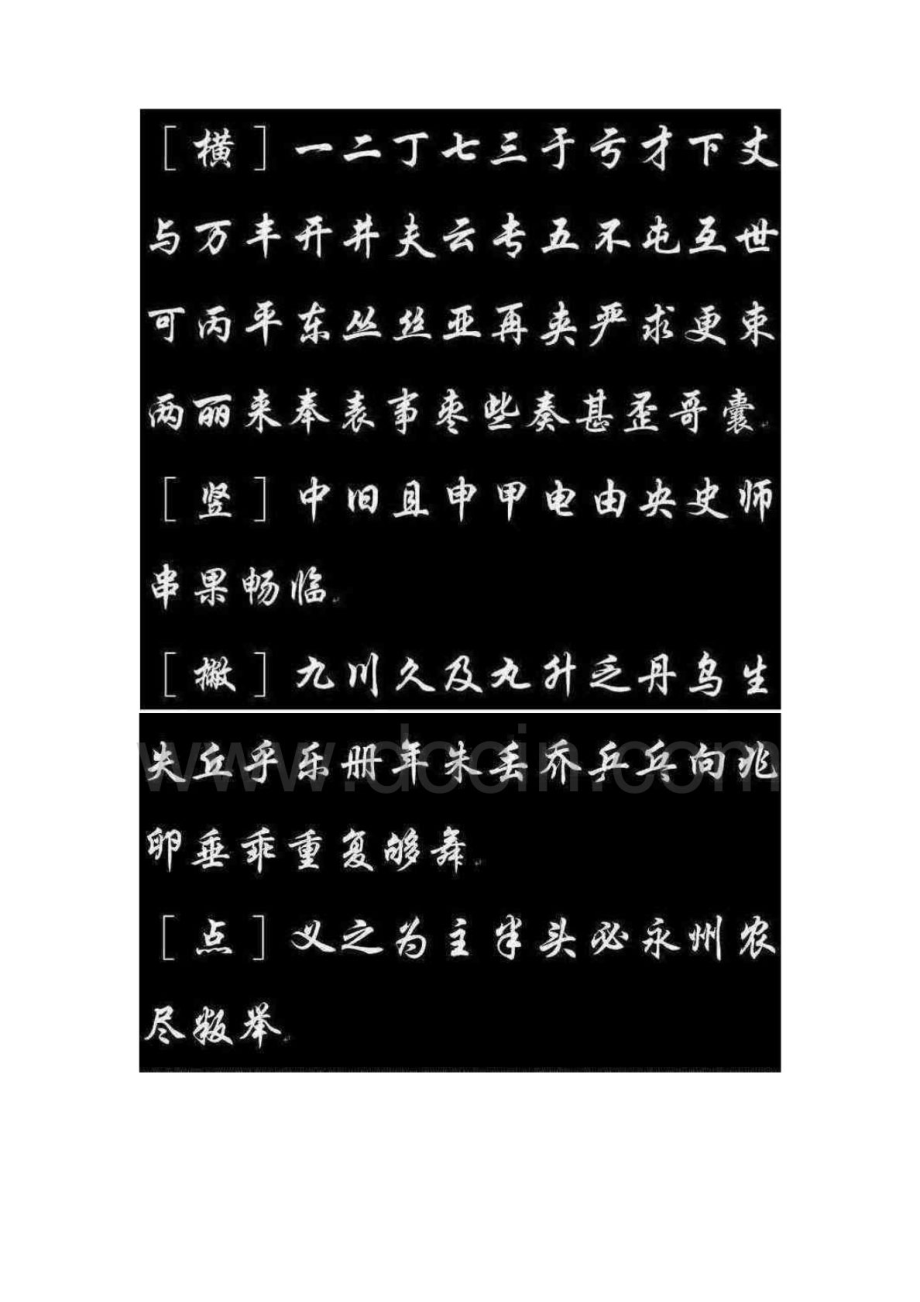 ［横］一二丁七三于亏才下丈
与万丰开井夫云专五不屯互世
可丙平东丛丝亚再夹严求更束
两丽来奉表事枣些奏甚歪哥囊
［竖］中旧且申甲电由央史师
串果畅临
［撇］九川久及丸升乏丹乌生
失丘乎乐册年朱丢乔乒乓向兆
卵垂乖重复够舞
［点］义之为主半头必永州农
尽叛举
www.docin.com